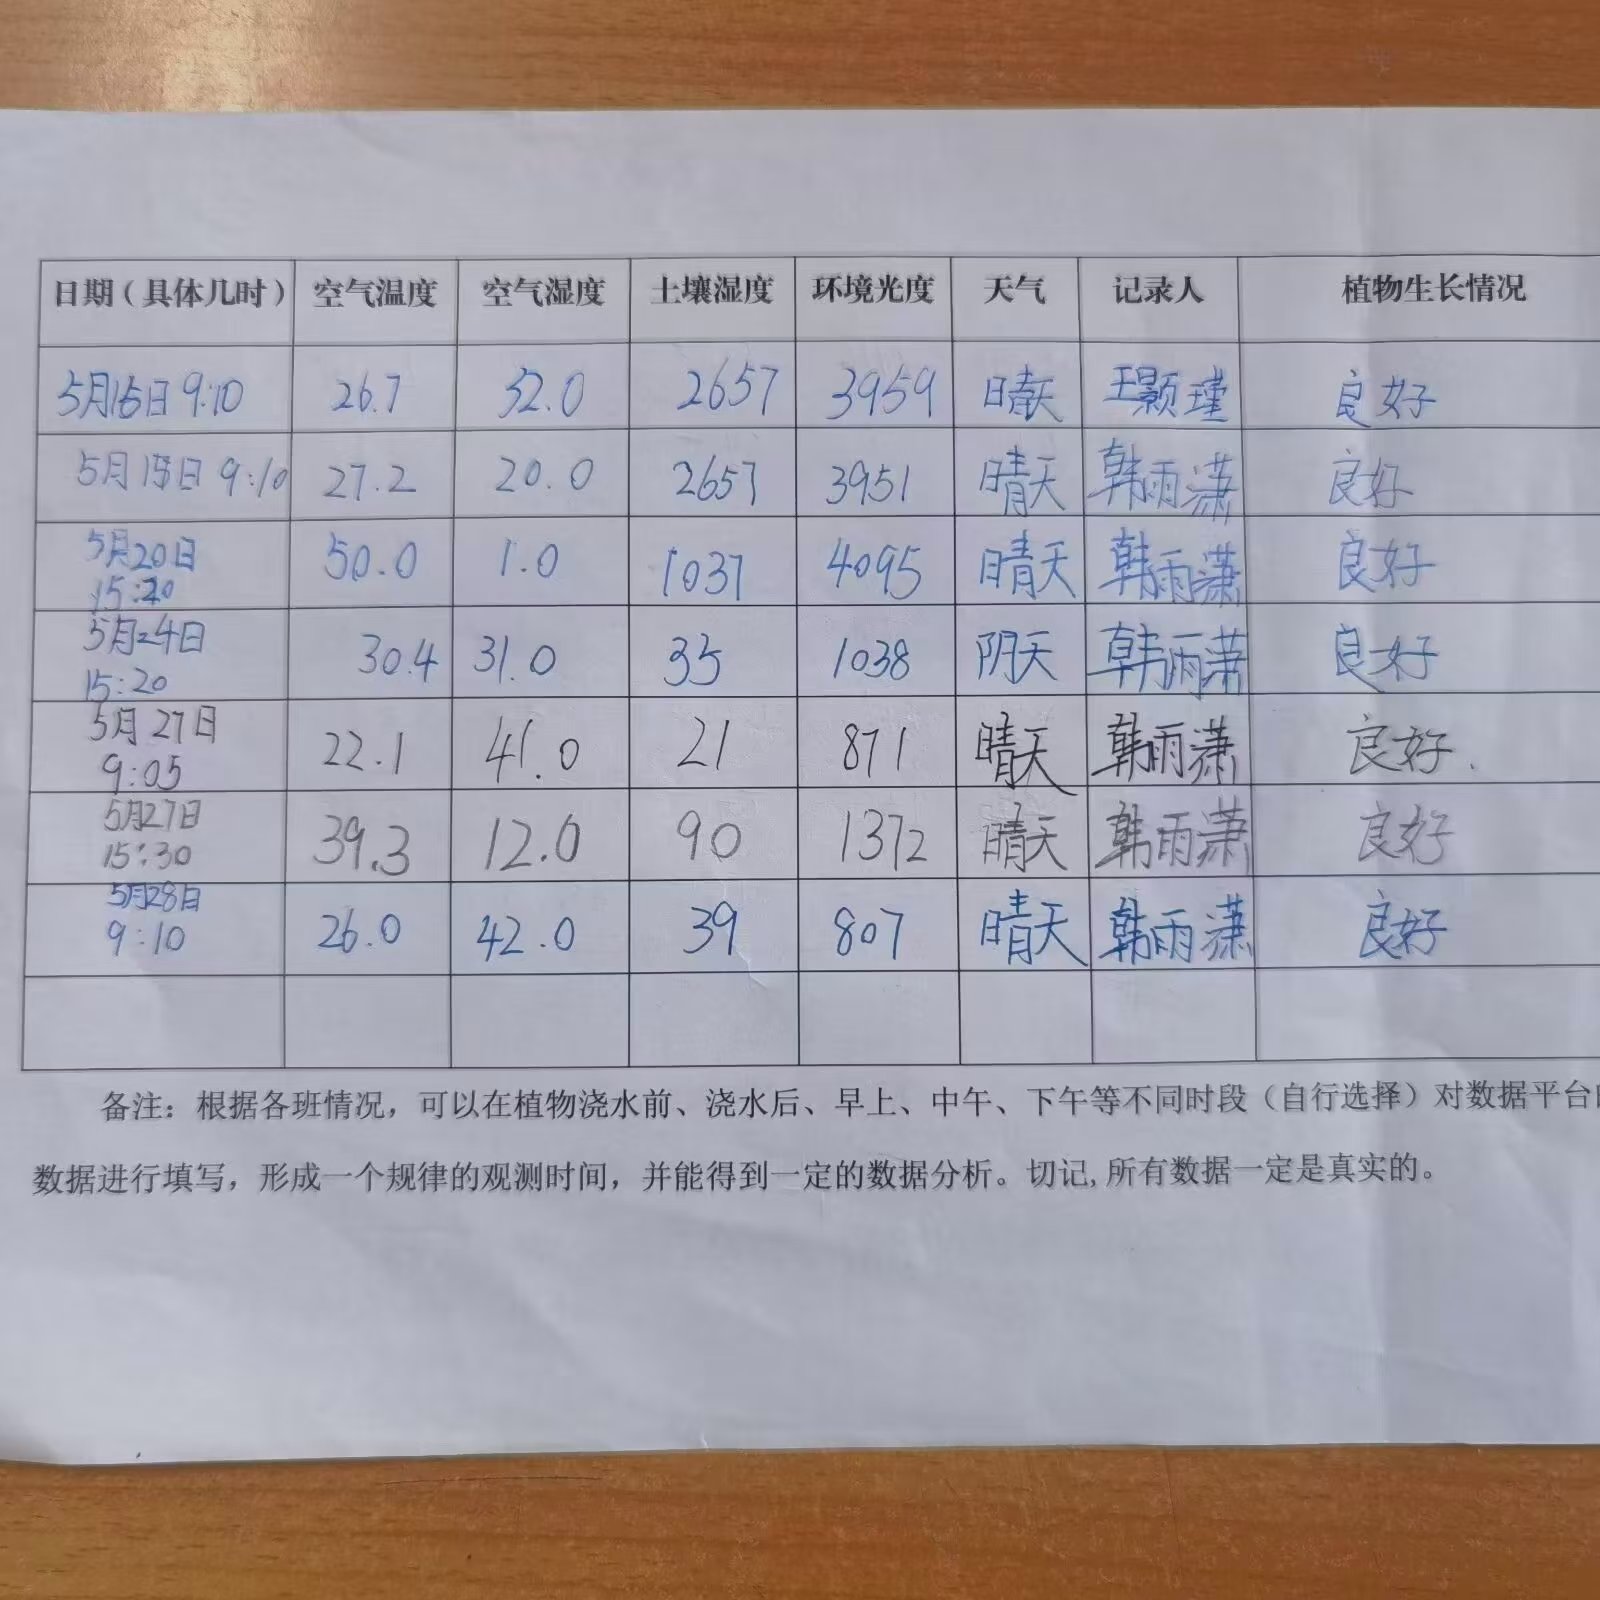 日期（具体几时） 空气温度 空气湿度 土壤湿度 环境光度 天气 记录人 植物生长情况
5月15日 9:10 26.7 32.0 2657 3959 晴天 王颢瑾 良好
5月15日 9:10 27.2 20.0 2657 3951 晴天 韩雨潇 良好
5月20日 15:20 50.0 1.0 1037 4095 晴天 韩雨潇 良好
5月24日 15:20 30.4 31.0 35 1038 阴天 韩雨潇 良好
5月27日 9:05 22.1 41.0 21 871 晴天 韩雨潇 良好.
5月27日 15:30 39.3 12.0 90 1372 晴天 韩雨潇 良好
5月28日 9:10 26.0 42.0 39 807 晴天 韩雨潇 良好
备注：根据各班情况，可以在植物浇水前、浇水后、早上、中午、下午等不同时段（自行选择）对数据平台
数据进行填写，形成一个规律的观测时间，并能得到一定的数据分析。切记,所有数据一定是真实的。